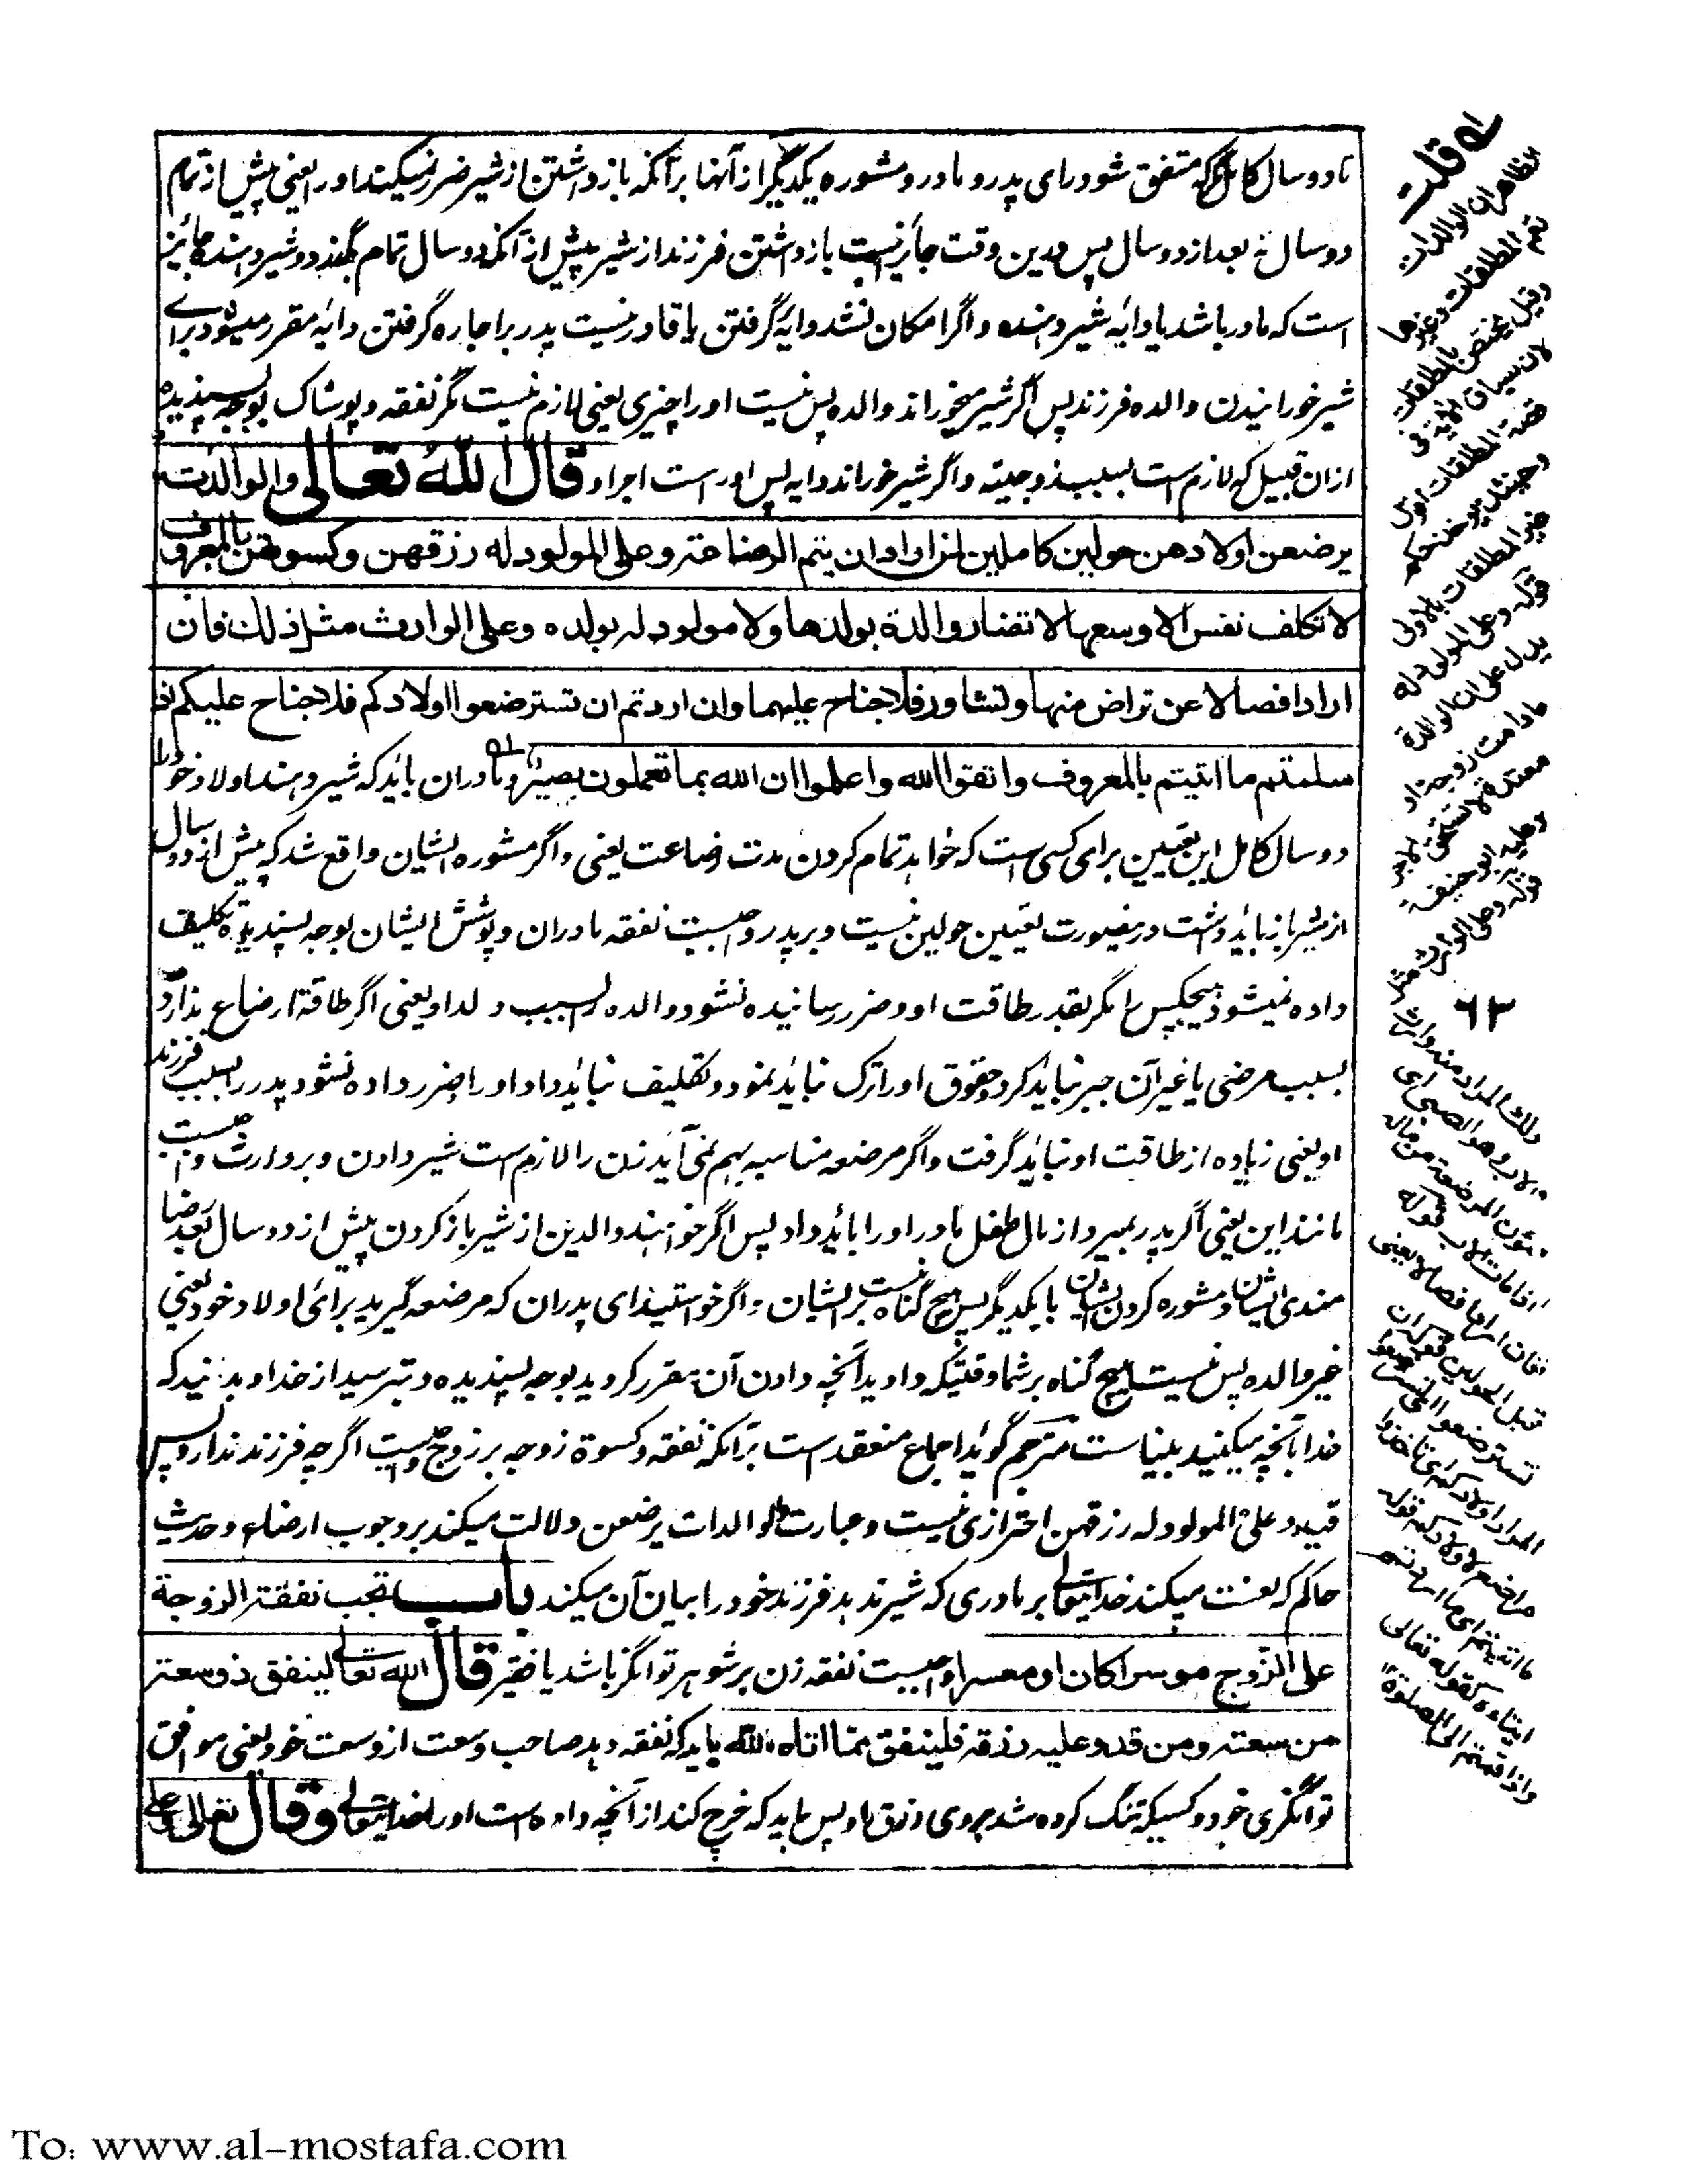 تا دو سال کامل مگر که متفق شود رای پدر و مادر و مشوره یکدیگر از آنها برآنکه باز داشتن از شیر ضرر نمیکند او را یعنی پیش از تمام
دو سال نه بعد از دو سال پس درین وقت جائز نیست باز داشتن فرزند از شیر پیش از آنکه دو سال تمام کند و شیر دهنده جائیز
است که مادر باشد یا دایه شیر دهنده و اگر امکان نشد دایه گرفتن یا قادر نیست پدر بر اجاره گرفتن دایه مقرر میشود برای
شیر خورانیدن والده فرزند پس اگر شیر میخوراند والده پس نیست او را چیزی یعنی لازم نیست مگر نفقه و پوشاک بوجه پسندیده
ازان قبیل که لازم است بسبب زوجیته و اگر شیر خوراند دایه پس او راست اجر او قال الله تعالی والوالدت
یرضعن اولادهن حولین کاملین لمن اراد ان یتم الرضاعة وعلی المولود له رزقهن وکسوتهن بالمعروف
لا تکلف نفس الا وسعها لا تضار والدة بولدها ولا مولود له بولده وعلی الوارث مثل ذلک فان
ارادا فصالا عن تراض منهما وتشاور فلا جناح علیهما وان اردتم ان تسترضعوا اولادکم فلا جناح علیکم اذا
سلمتم ما اتیتم بالمعروف واتقوا الله واعلموا ان الله بما تعملون بصیر و مادران باید که شیر دهند اولاد خود را
دو سال کامل این تعیین برای کسی است که خواهد تمام کردن مدت رضاعت یعنی و اگر مشوره ایشان واقع شد که پیش از دو سال
از شیر باز باید داشت درینصورت تعیین حولین نیست و بر پدر واجبست نفقه مادران و پوشش ایشان بوجه پسندیده تکلیف
داده نمیشود هیچکس را مگر بقدر طاقت او و ضرر رسانیده نشود والده بسبب ولد او یعنی اگر طاقة ارضاع ندارد
بسبب مرضی یا غیر آن جبر نباید کرد و حقوق او را ترک نباید نمود و تکلیف نباید داد او را و ضرر داده نشود پدر را بسبب فرزند
او یعنی زیاده از طاقت او نباید گرفت و اگر مرضعه مناسبه بهم نمی آید زن را لازم است شیر دادن و بر وارث واجبست
مانند این یعنی اگر پدر بمیرد از مال طفل مادر او را باید داد پس اگر خواهند والدین از شیر باز کردن پیش از دو سال بعد رضا
مندی ایشان و مشوره کردن ایشان با یکدیگر پس هیچ گناه نیست بر ایشان و اگر خواستید ای پدران که مرضعه گیرید برائی اولاد خود یعنی
غیر والده پس نیست هیچ گناه بر شما وقتیکه دادید آنچه دادن آن مقرر کردید بوجه پسندیده و بترسید از خدا و بدانید که
خدا بآنچه میکنید بینا است مترجم گوید اجماع منعقد است برآنکه نفقه و کسوة زوجه بر زوج واجبست اگرچه فرزند ندارد پس
قید وعلی المولود له رزقهن احترازی نیست و عبارت والوالدات یرضعن دلالت میکند بر وجوب ارضاع و حدیث
حاکم که لعنت میکند خدایتعالی بر مادری که شیر ندهد فرزند خود را بیان آن میکند باب تجب نفقة الزوجة
علی الزوج موسرا کان او معسرا واجبست نفقه زن بر شوهر توانگر باشد یا فقیر قال الله تعالی لینفق ذو سعة
من سعته ومن قدر علیه رزقه فلینفق مما اتاه الله باید که نفقه دهد صاحب وسعت از وسعت خود یعنی موافق
توانگری خود و کسیکه تنگ کرده شد بروی رزق او پس باید که خرج کند از آنچه داده است او را خدایتعالی وقال تعالی وعلی
له قلت
الظاهر ان الوالدات
تعم المطلقات وغیرها
وقیل یختص بالمطلقات
لان سیاق الآیة فی
قصة المطلقات اقول
وحینئذ یؤخذ حکم
غیر المطلقات بالاولی
قوله وعلی المولود له
یدل علی ان الوالدة
مادامت زوجة او
معتدة لا تستحق الاجر
وعلیه ابو حنیفة
قوله وعلی الوارث مثل
۶۳
ذلک المراد منه وارث
الاب وهو الصبی ای
مؤن المرضعة من ماله
اذا مات الاب قوله
فان ارادا فصالا یعنی
قبل الحولین قوله ان
تسترضعوا
المراد اولادکم ای تاخذوا
مراضع لاولادکم قوله
ما اتیتم ای ما اردتم
ایتاءه کقوله تعالی
واذا قمتم الی الصلوة
To: www.al-mostafa.com